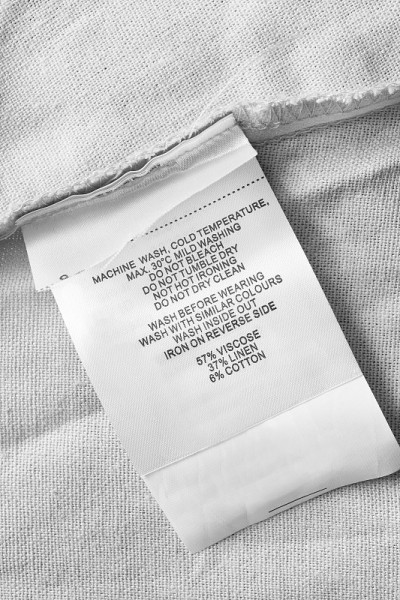 MACHINE WASH, COLD TEMPERATURE,
MAX. 30°C MILD WASHING
DO NOT BLEACH
DO NOT TUMBLE DRY
NOT HOT IRONING
DO NOT DRY CLEAN
WASH BEFORE WEARING
WASH WITH SIMILAR COLOURS
WASH INSIDE OUT
IRON ON REVERSE SIDE
57% VISCOSE
37% LINEN
6% COTTON